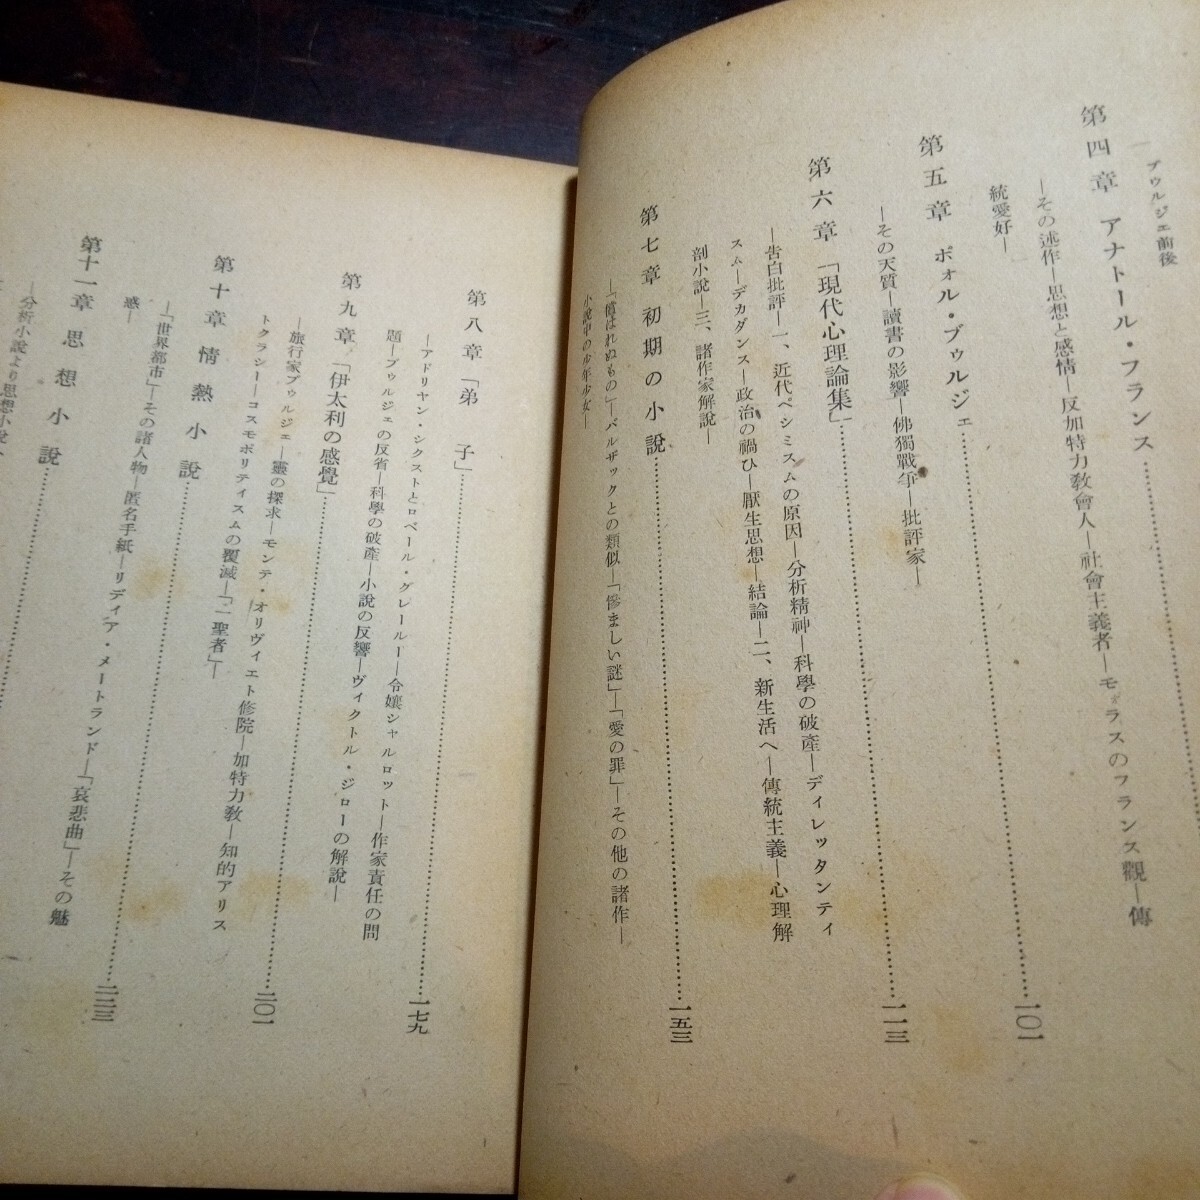 ブゥルジェ前後
第四章 アナトール・フランス
―その述作―思想と感情―反加特力敎會人―社會主義者―モラスのフランス觀―傳
統愛好―
一〇一
第五章 ポォル・ブゥルジェ
―その天質―讀書の影響―佛獨戰爭―批評家―
一一三
第六章 「現代心理論集」
―告白批評―一、近代ペシミスムの原因―分析精神―科學の破產―ディレッタンティ
スム―デカダンス―政治の禍ひ―厭生思想―結論―二、新生活へ―傳統主義―心理解
剖小說―三、諸作家解說―
第七章 初期の小說
一五三
―「償はれぬもの」―バルザックとの類似―「慘ましい謎」―「愛の罪」―その他の諸作―
小說中の少年少女―
第八章 「弟子」
一七九
―アドリヤン・シクストとロベール・グレールー―令孃シャルロット―作家責任の問
題―ブゥルジェの反省―科學の破產―小說の反響―ヴィクトル・ジローの解說―
第九章 「伊太利の感覺」
二〇一
―旅行家ブゥルジェ―靈の探求―モンテ・オリヴィエト修院―加特力敎―知的アリス
トクラシー―コスモポリティスムの覆滅―「一聖者」―
第十章 情熱小說
二二三
―「世界都市」―その諸人物―匿名手紙―リディア・メートランド―「哀悲曲」―その魅
惑―
第十一章 思想小說
―分析小說より思想小說へ